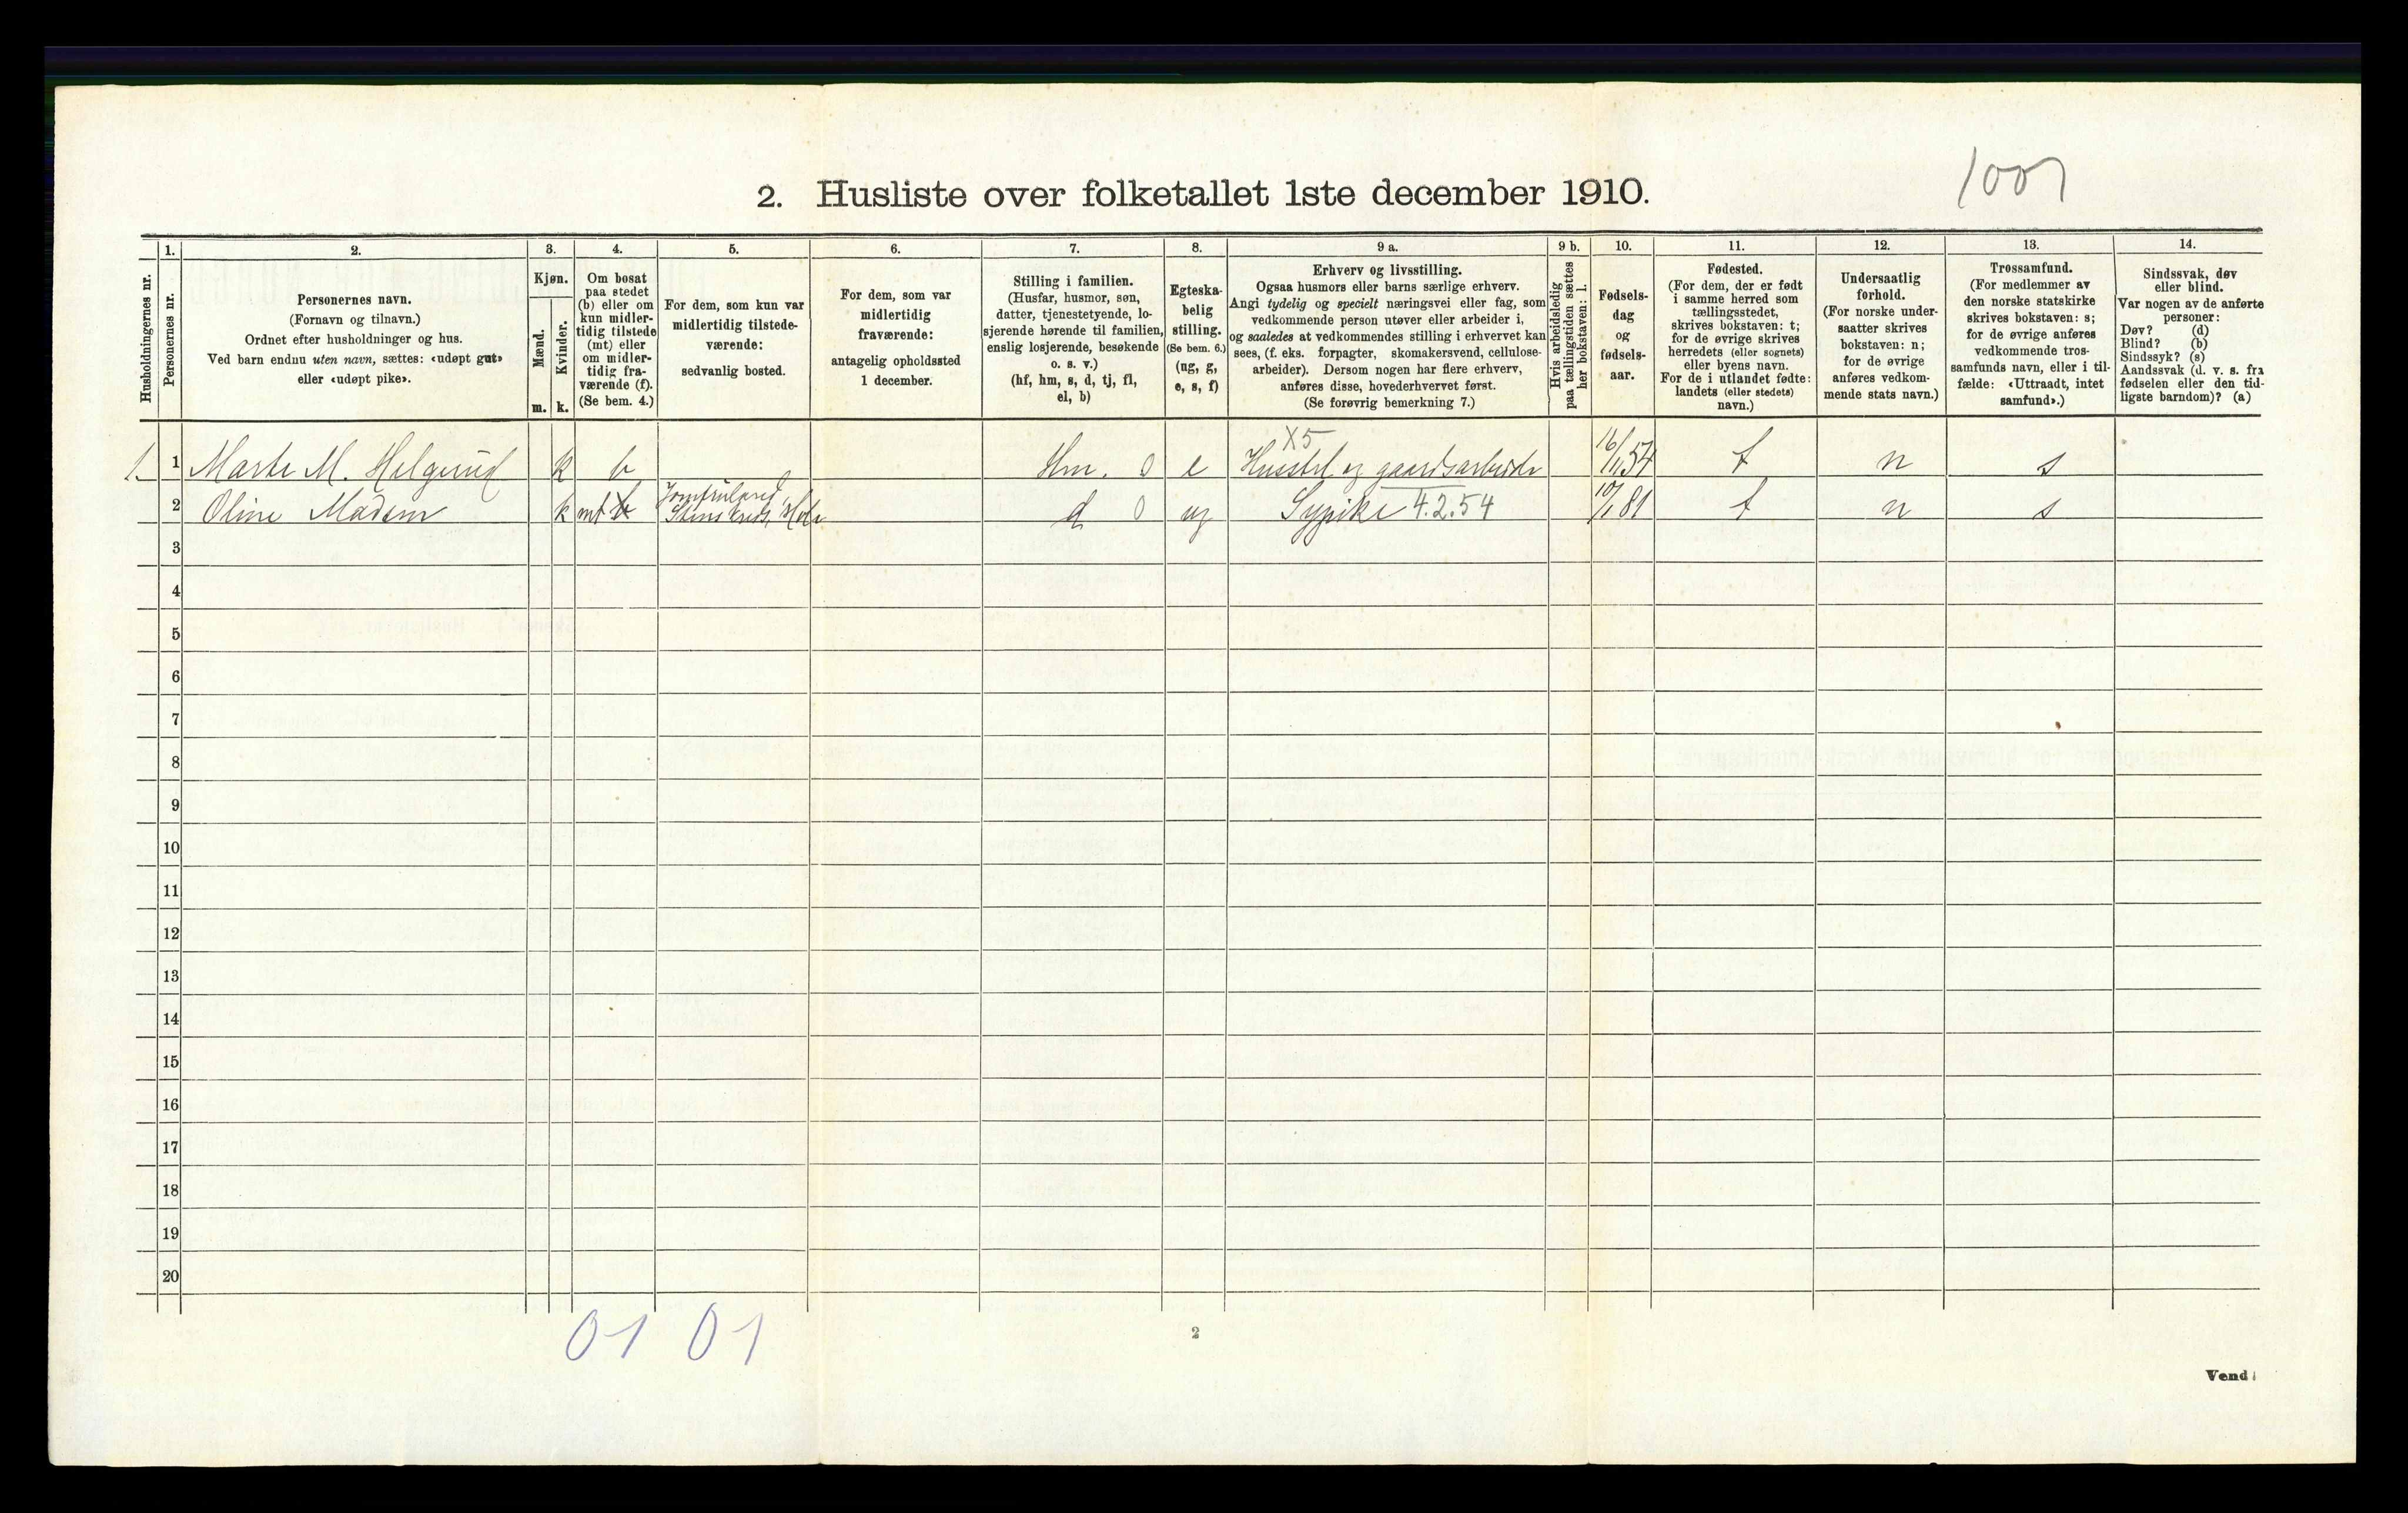 1001
2. Husliste over folketallet 1ste december 1910.
Husholdningernes nr.
1.
Personernes nr.
2.
Personernes navn.
(Fornavn og tilnavn.)
Ordnet efter husholdninger og hus.
Ved barn endnu uten navn, sættes: «udøpt gut»
eller «udøpt pike».
3.
Kjøn.
Mænd.
Kvinder.
m. k.
4.
Om bosat
paa stedet
(b) eller om
kun midler-
tidig tilstede
(mt) eller
om midler-
tidig fra-
værende (f).
(Se bem. 4.)
5.
For dem, som kun var
midlertidig tilstede-
værende:
sedvanlig bosted.
6.
For dem, som var
midlertidig
fraværende:
antagelig opholdssted
1 december.
7.
Stilling i familien.
(Husfar, husmor, søn,
datter, tjenestetyende, lo-
sjerende hørende til familien,
enslig losjerende, besøkende
o. s. v.)
(hf, hm, s, d, tj, fl,
el, b)
8.
Egteska-
belig
stilling.
(Se bem. 6.)
(ug, g,
e, s, f)
9 a.
Erhverv og livsstilling.
Ogsaa husmors eller barns særlige erhverv.
Angi tydelig og specielt næringsvei eller fag, som
vedkommende person utøver eller arbeider i,
og saaledes at vedkommendes stilling i erhvervet kan
sees, (f. eks. forpagter, skomakersvend, cellulose-
arbeider). Dersom nogen har flere erhverv,
anføres disse, hovederhvervet først.
(Se forøvrig bemerkning 7.)
9 b.
Hvis arbeidsledig
paa tællingstiden sættes
her bokstaven: l.
10.
Fødsels-
dag
og
fødsels-
aar.
11.
Fødested.
(For dem, der er født
i samme herred som
tællingsstedet,
skrives bokstaven: t;
for de øvrige skrives
herredets (eller sognets)
eller byens navn.
For de i utlandet fødte:
landets (eller stedets)
navn.)
12.
Undersaatlig
forhold.
(For norske under-
saatter skrives
bokstaven: n;
for de øvrige
anføres vedkom-
mende stats navn.)
13.
Trossamfund.
(For medlemmer av
den norske statskirke
skrives bokstaven: s;
for de øvrige anføres
vedkommende tros-
samfunds navn, eller i til-
fælde: «Uttraadt, intet
samfund».)
14.
Sindssvak, døv
eller blind.
Var nogen av de anførte
personer:
Døv? (d)
Blind? (b)
Sindssyk? (s)
Aandssvak (d. v. s. fra
fødselen eller den tid-
ligste barndom)? (a)
X5
1. 1 Marte M. Helgerud k b Hm. 0 e Husstel og gaardsarbeide 16/11 54 t n s
2 Oline Madsen k mt b Jomfruland d 0 ug Sypike 4.2.54 10/1 81 t n s
3
4
5
6
7
8
9
10
11
12
13
14
15
16
17
18
19
20
01 01
2
Vend!